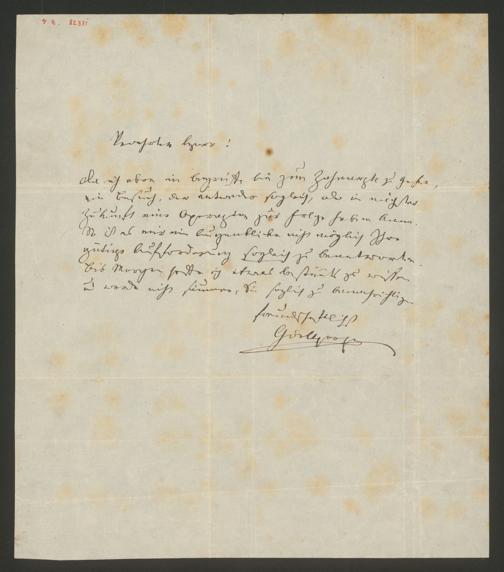 Verehrter Herr!
Da ich eben im Begriffe bin zum Zahnarzte zu gehe,
ein Besuch, der entweder sogleich, oder in nächster
Zukunft eine Operazion zur Folge haben kann.
So ist es mir im Augenblicke nicht möglich Ihre
gütige Aufforderung sogleich zu beantworten.
Bis Morgen hoffe ich etwas bestimmtes zu wissen
u werde nicht säumen, Sie sogleich zu benachrichtigen
freundschaftlichst
Grillparzer